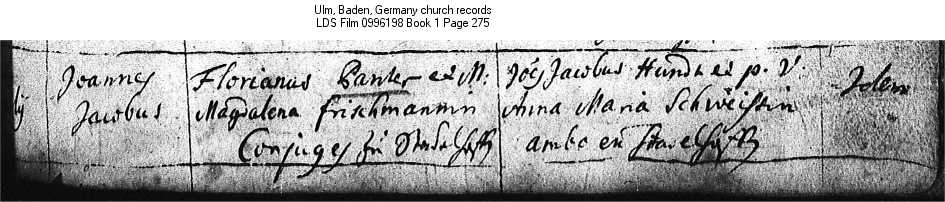 Ulm, Baden, Germany church records
LDS Film 0996198 Book 1 Page 275
Joannes
Jacobus
Florianus Panter et M:
Magdalena Frischmannin
Conjuges
Joês Jacobus Hund et p. V:
Anna Maria Schweissin
ambo
Idem